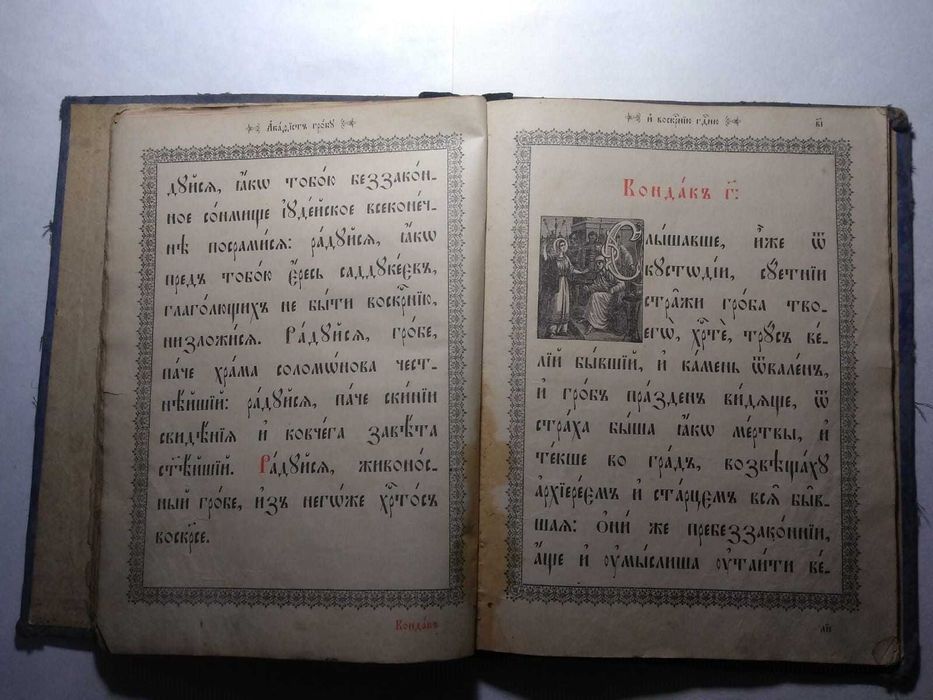 А҆ка́ѳїстъ гро́бꙋ
дꙋ́йсѧ, ꙗ҆́кѡ тобо́ю беззако́н-
ное со́нмище і҆ꙋде́йское всеконе́ч-
нѣ посрами́сѧ: ра́дꙋйсѧ, ꙗ҆́кѡ
предъ тобо́ю є҆́ресь саддꙋке́євъ,
глаго́лющихъ не бы́ти воскрⷭ҇нїю,
низложи́сѧ. Ра́дꙋйсѧ, гро́бе,
па́че хра́ма соломѡ́нова чест-
нѣ́йшїй: ра́дꙋйсѧ, па́че ски́нїи
свидѣ́нїѧ и҆ ковче́га завѣ́та
ст҃ѣ́йшїй. Ра́дꙋйсѧ, живоно́с-
ный гро́бе, и҆з̾ негѡ́же хрⷭ҇то́съ
воскр҃се.
Конда́къ
и҆ воскрⷭ҇нїю гдⷭ҇ню
Конда́къ г҃:
Слы́шавше, и҆̀же ѿ
кꙋстѡді́и, сꙋ́етнїи
стра́жи гро́ба тво-
егѡ̀, хрⷭ҇тѐ, трꙋ́съ ве́-
лїй бы́вшїй, и҆ ка́мень ѿва́ленъ,
и҆ гро́бъ пра́зденъ ви́дѧще, ѿ
стра́ха бы́ша ꙗ҆́кѡ ме́ртвы, и҆
те́кше во гра́дъ, возвѣща́хꙋ
а҆рхїере́ємъ и҆ ста́рцємъ всѧ̑ бы̑в-
шаѧ: Ѻ҆ни́ же пребеззако́ннїи,
а҆́ще и҆ ᲂу҆мы́слиша ᲂу҆таи́ти ве́-
л҃и